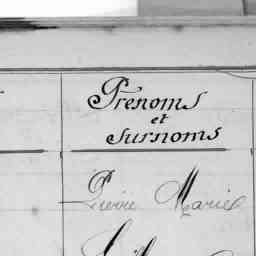 Prenoms
et
surnoms
Pierre Marie